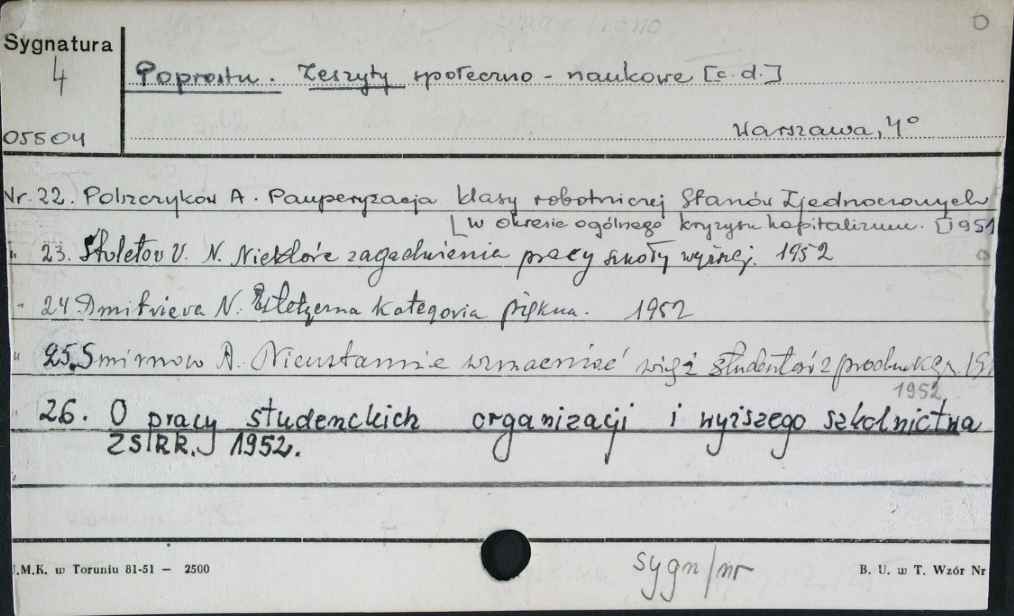 O
Sygnatura
4
Poprostu. Zeszyty społeczno - naukowe [c.d.]
05504
Warszawa, 4°
Nr. 22. Poliszczykow A. Pauperyzacja klasy robotniczej Stanów Zjednoczonych
[w okresie ogólnego kryzysu kapitalizmu. [1951
" 23. Stoletov V. N. Niektóre zagadnienia pracy szkoły wyższej. 1952
" 24. Dmitrieva N. Estetyczna kategoria piękna. 1952
" 25. Smirnow A. Nieustannie wzmacniać więź studentów z produkcją. 19
1952
" 26. O pracy studenckich organizacji i wyższego szkolnictwa
ZSRR. 1952.
.M.K. w Toruniu 81-51 - 2500
sygn/nr
B. U. w T. Wzór Nr